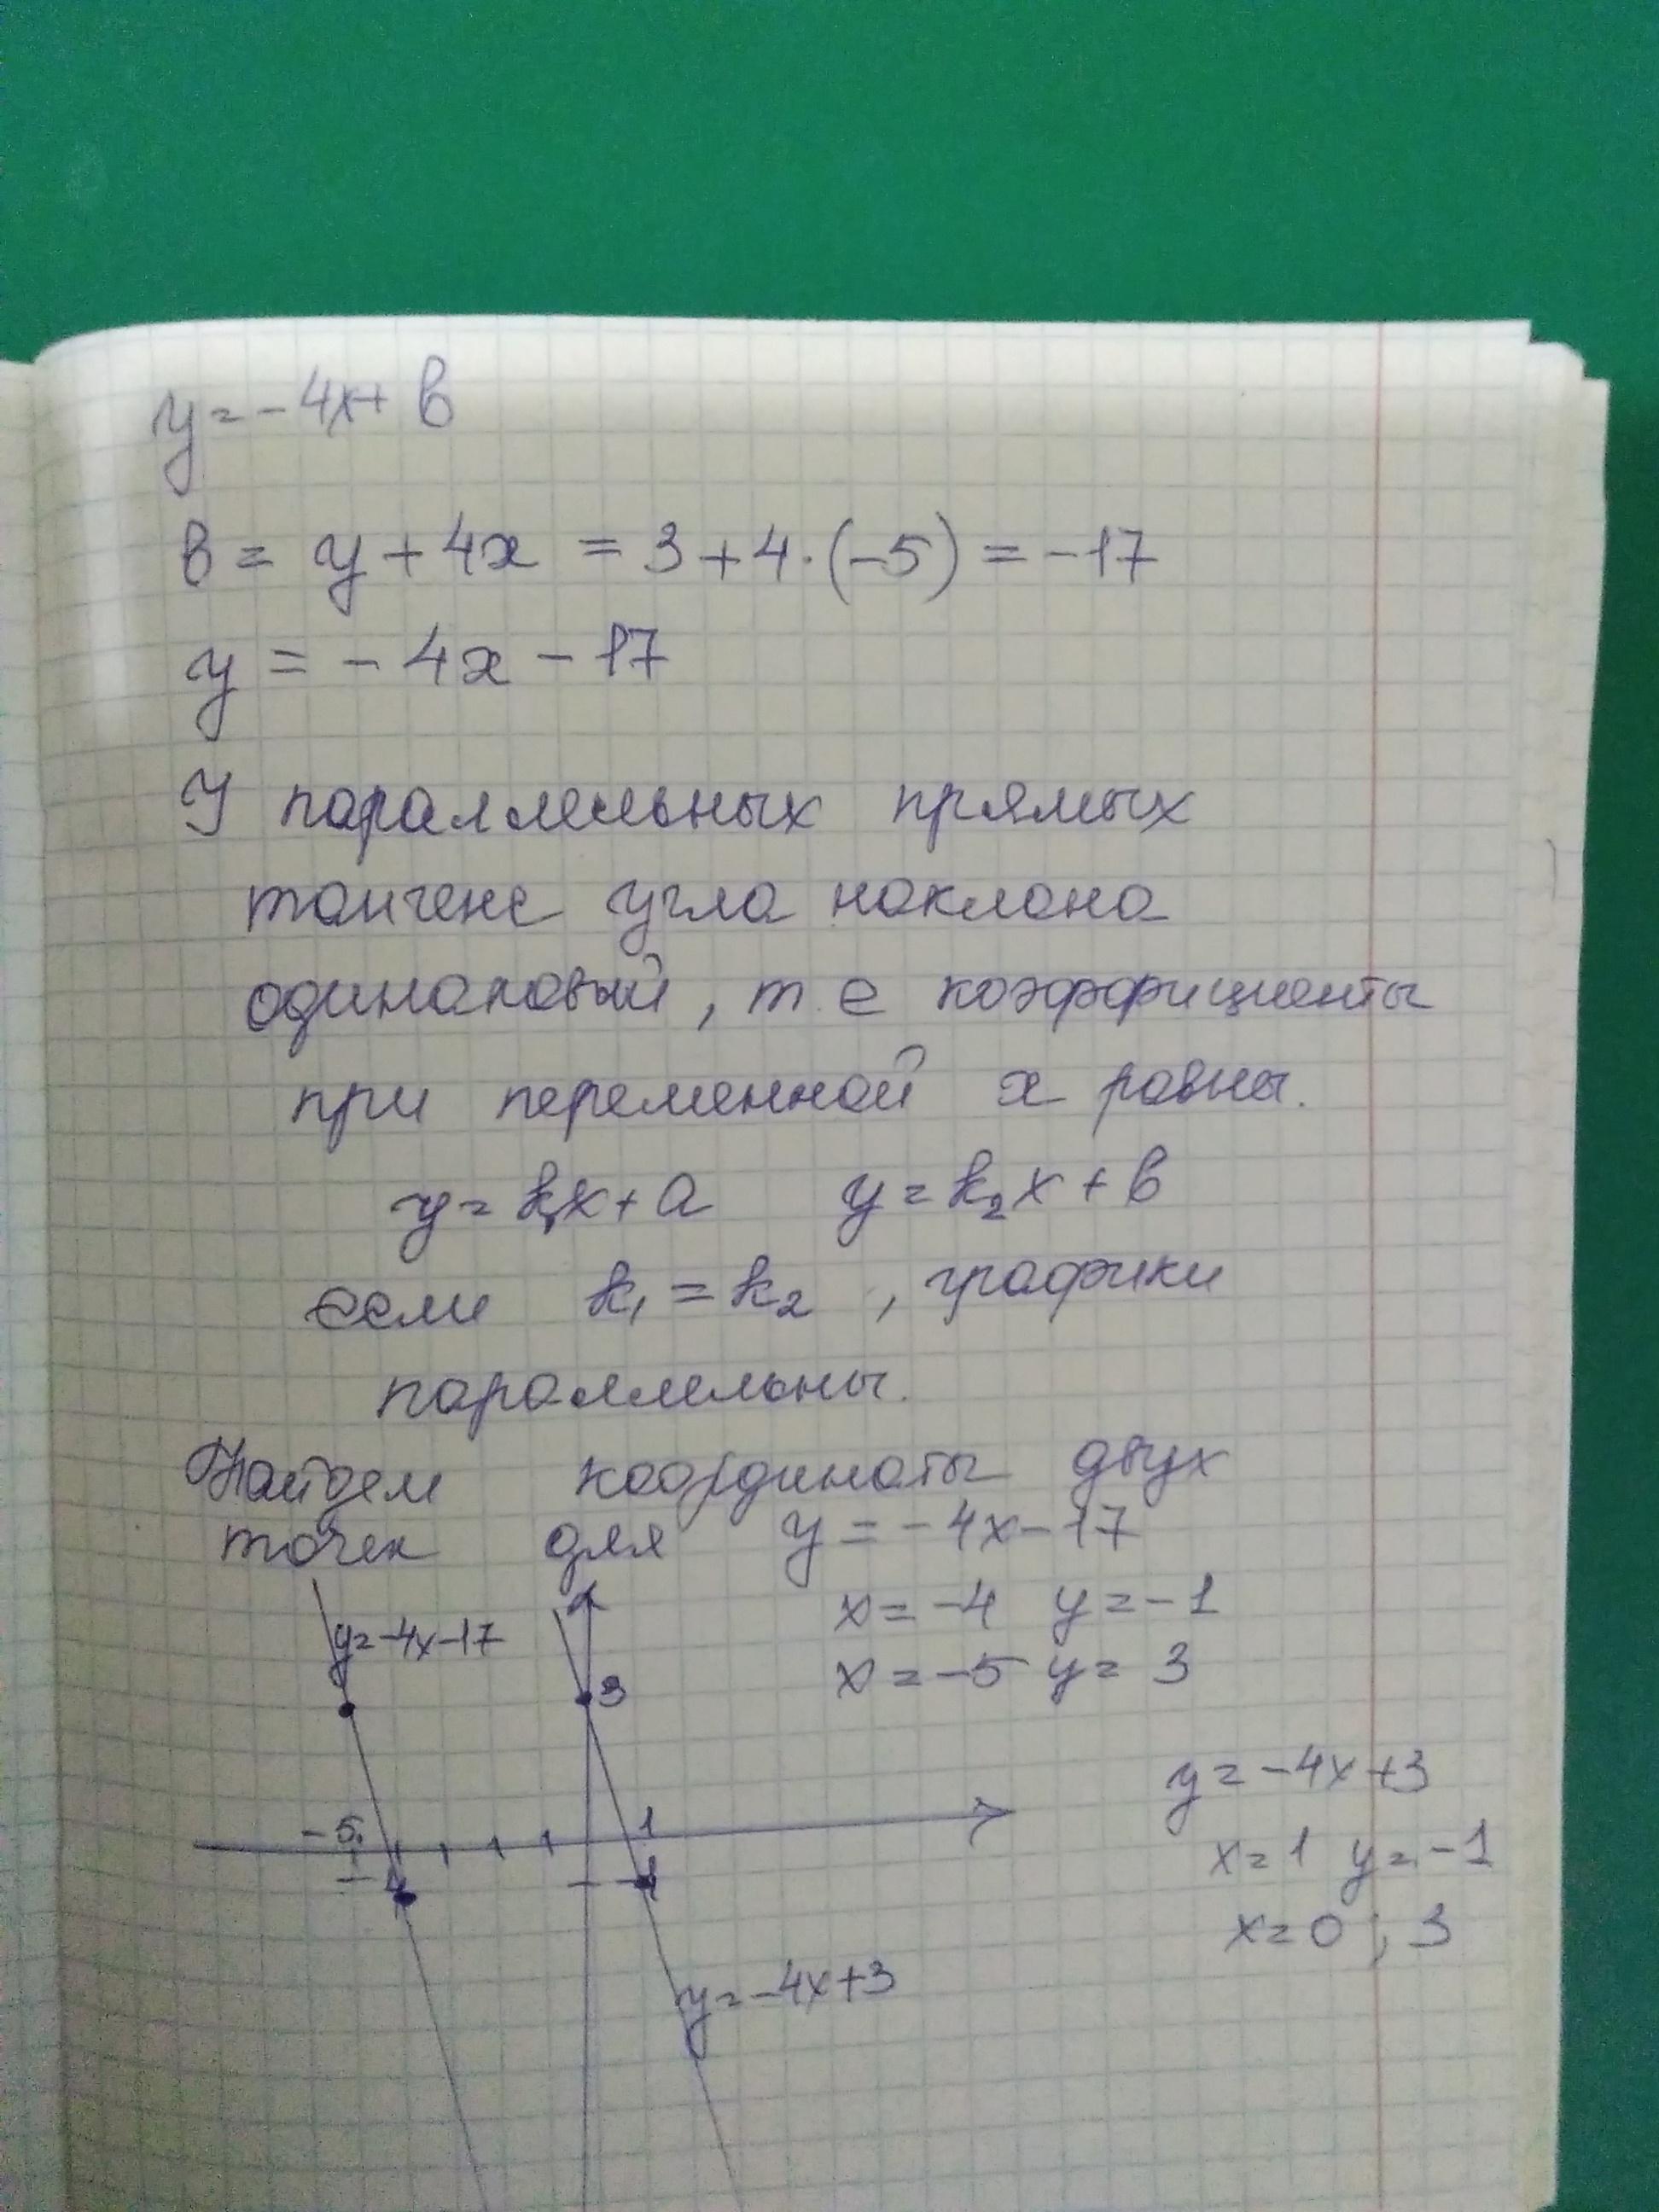 y = -4x + в
в = y + 4x = 3 + 4·(-5) = -17
y = -4x - 17
У параллельных прямых
тангенс угла наклона
одинаковый, т.е коэффициенты
при переменной x равны.
y = k₁x + a y = k₂x + в
если k₁ = k₂ , графики
параллельны.
Найдем координаты двух
точек для y = -4x - 17
x = -4 y = -1
x = -5 y = 3
y = -4x - 17
3
-5
1
-1
y = -4x + 3
x = 1 y = -1
x = 0 ; 3
y = -4x + 3